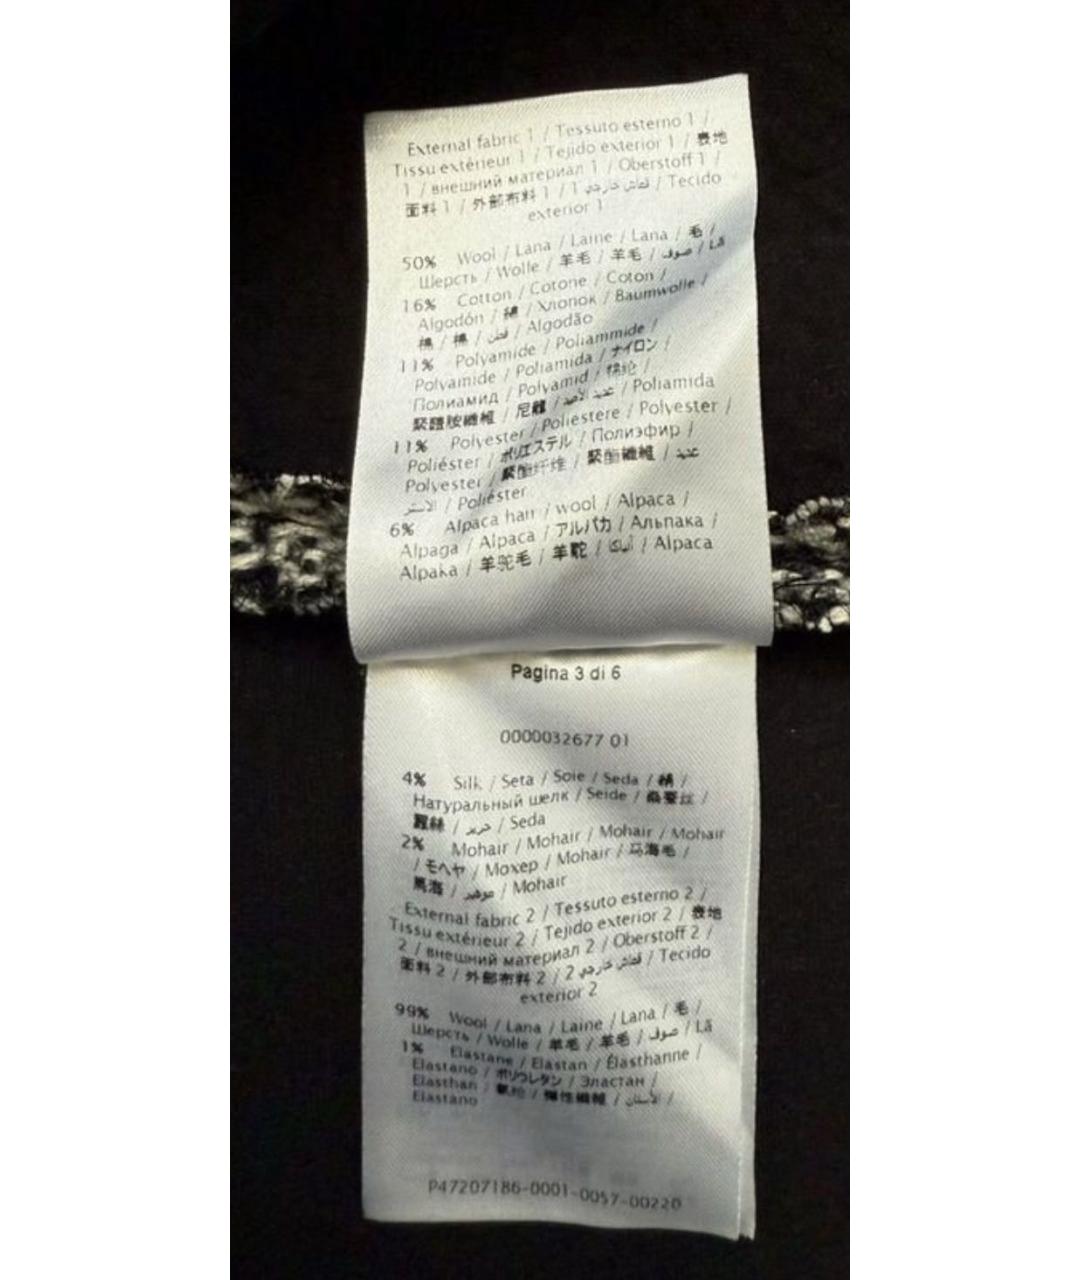 External fabric 1 / Tessuto esterno 1 /
Tissu extérieur 1 / Tejido exterior 1 / 表地
1 / внешний материал 1 / Oberstoff 1 /
面料 1 / 外部布料 1 / 1 قماش خارجي / Tecido
exterior 1
50% Wool / Lana / Laine / Lana / 毛 /
Шерсть / Wolle / 羊毛 / 羊毛 / صوف / Lã
16% Cotton / Cotone / Coton /
Algodón / 綿 / Хлопок / Baumwolle /
棉 / 棉 / قطن / Algodão
11% Polyamide / Poliammide /
Polyamide / Poliamida / ナイロン /
Полиамид / Polyamid / 锦纶 /
聚醯胺纖維 / 尼龍 / / Poliamida
11% Polyester / Poliestere / Polyester /
Poliéster / ポリエステル / Полиэфир /
Polyester / 聚酯纤维 / 聚酯纖維 /
/ Poliéster
6% Alpaca hair / wool / Alpaca /
Alpaga / Alpaca / アルパカ / Альпака /
Alpaka / 羊驼毛 / 羊駝 / ألباكا / Alpaca
Pagina 3 di 6
0000032677 01
4% Silk / Seta / Soie / Seda / 絹 /
Натуральный шелк / Seide / 桑蚕丝 /
蠶絲 / حرير / Seda
2% Mohair / Mohair / Mohair / Mohair
/ モヘヤ / Мохер / Mohair / 马海毛 /
馬海 / موهير / Mohair
External fabric 2 / Tessuto esterno 2 /
Tissu extérieur 2 / Tejido exterior 2 / 表地
2 / внешний материал 2 / Oberstoff 2 /
面料 2 / 外部布料 2 / 2 قماش خارجي / Tecido
exterior 2
99% Wool / Lana / Laine / Lana / 毛 /
Шерсть / Wolle / 羊毛 / 羊毛 / صوف / Lã
1% Elastane / Elastan / Élasthanne /
Elastano / ポリウレタン / Эластан /
Elasthan / 氨纶 / 彈性纖維 / الأستان /
Elastano
P47207186-0001-0057-00220